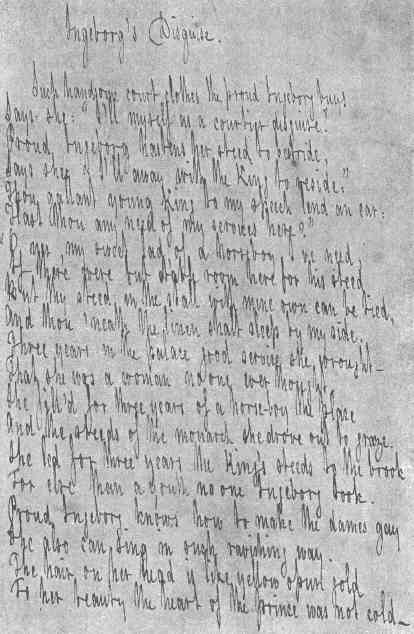 Ingeborg's Disguise.
Such handsome court clothes the proud Ingeborg buys
Says she: "I'll myself as a courtier disguise."
Proud Ingeborg hastens her steed to bestride,
Says she, "I'll away with the King to reside."
"Thou gallant young King to my speech lend an ear:
Hast thou any need of my services here?"
"O yes, my sweet lad, of a horseboy I've need,
If there were but stable room here for his steed
But thy steed in the stall with mine own can be tied,
And thou 'neath the linen shalt sleep by my side."
Three years in the palace good service she wrought—
That she was a woman no one ever thought,
She fill'd for three years of a horseboy the place
And the steeds of the monarch she drove out to graze.
She led for three years the King's steeds to the brook
For else than a youth no one Ingeborg took.
Proud Ingeborg knows how to make the dames gay
She also can sing in such ravishing way.
The hair on her head is like yellow spun gold
To her beauty the heart of the prince was not cold—